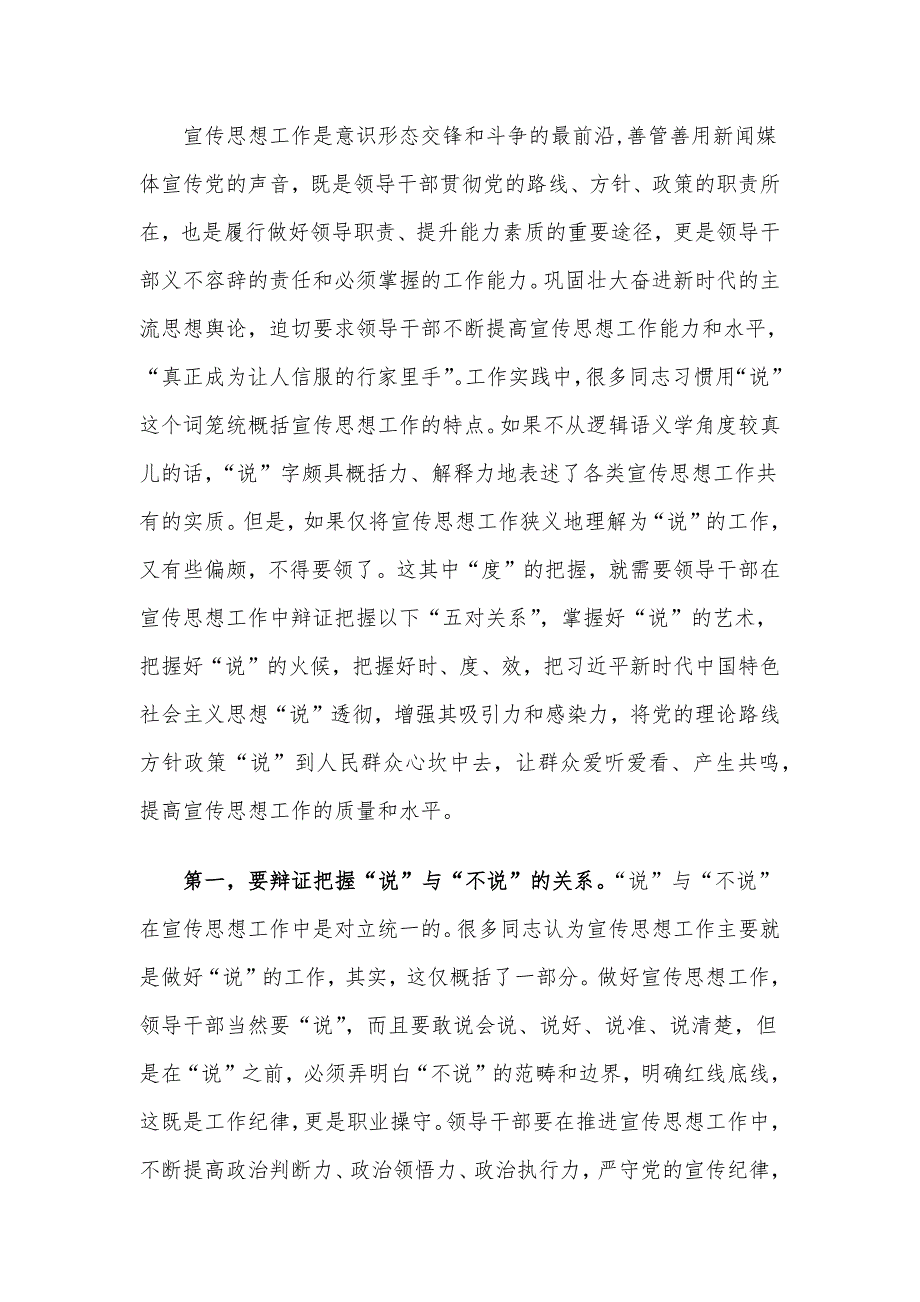 宣传思想工作是意识形态交锋和斗争的最前沿,善管善用新闻媒
体宣传党的声音，既是领导干部贯彻党的路线、方针、政策的职责所
在，也是履行做好领导职责、提升能力素质的重要途径，更是领导干
部义不容辞的责任和必须掌握的工作能力。巩固壮大奋进新时代的主
流思想舆论，迫切要求领导干部不断提高宣传思想工作能力和水平，
“真正成为让人信服的行家里手”。工作实践中，很多同志习惯用“说”
这个词笼统概括宣传思想工作的特点。如果不从逻辑语义学角度较真
儿的话，“说”字颇具概括力、解释力地表述了各类宣传思想工作共
有的实质。但是，如果仅将宣传思想工作狭义地理解为“说”的工作，
又有些偏颇，不得要领了。这其中“度”的把握，就需要领导干部在
宣传思想工作中辩证把握以下“五对关系”，掌握好“说”的艺术，
把握好“说”的火候，把握好时、度、效，把习近平新时代中国特色
社会主义思想“说”透彻，增强其吸引力和感染力，将党的理论路线
方针政策“说”到人民群众心坎中去，让群众爱听爱看、产生共鸣，
提高宣传思想工作的质量和水平。
第一，要辩证把握“说”与“不说”的关系。“说”与“不说”
在宣传思想工作中是对立统一的。很多同志认为宣传思想工作主要就
是做好“说”的工作，其实，这仅概括了一部分。做好宣传思想工作，
领导干部当然要“说”，而且要敢说会说、说好、说准、说清楚，但
是在“说”之前，必须弄明白“不说”的范畴和边界，明确红线底线，
这既是工作纪律，更是职业操守。领导干部要在推进宣传思想工作中，
不断提高政治判断力、政治领悟力、政治执行力，严守党的宣传纪律，